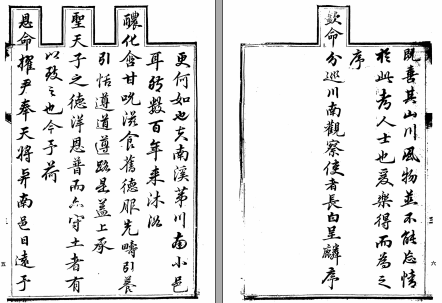 更何如也夫南溪第川南小邑
耳然數百年來沐浴
醲化含甘吮滋食舊德服先疇引養
引恬遵道遵路是蓋上承
聖天子之德洋恩普而亦守土者有
以致之也今予荷
恩命擢尹奉天將與南邑日遠予
五
既喜其山川風物並不能忘情
於此者人士也爰樂得而為之
序
欽命分巡川南觀察使者長白呈麟序
三
六